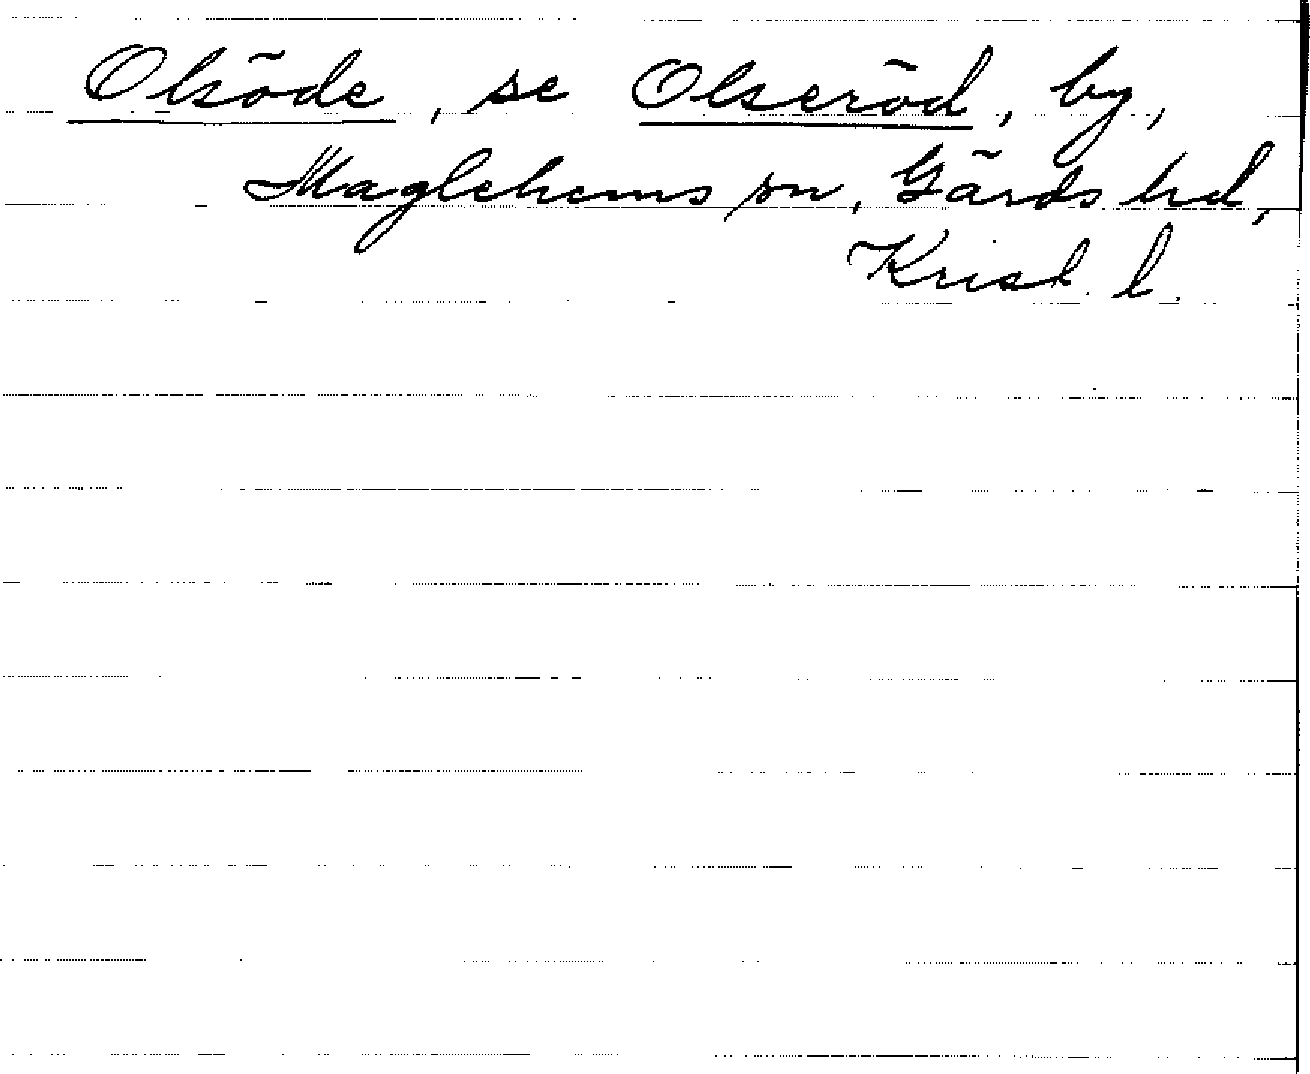 Olsöde, se Olseröd, by,
Maglehems sn, Gärds hd,
Krist. l.